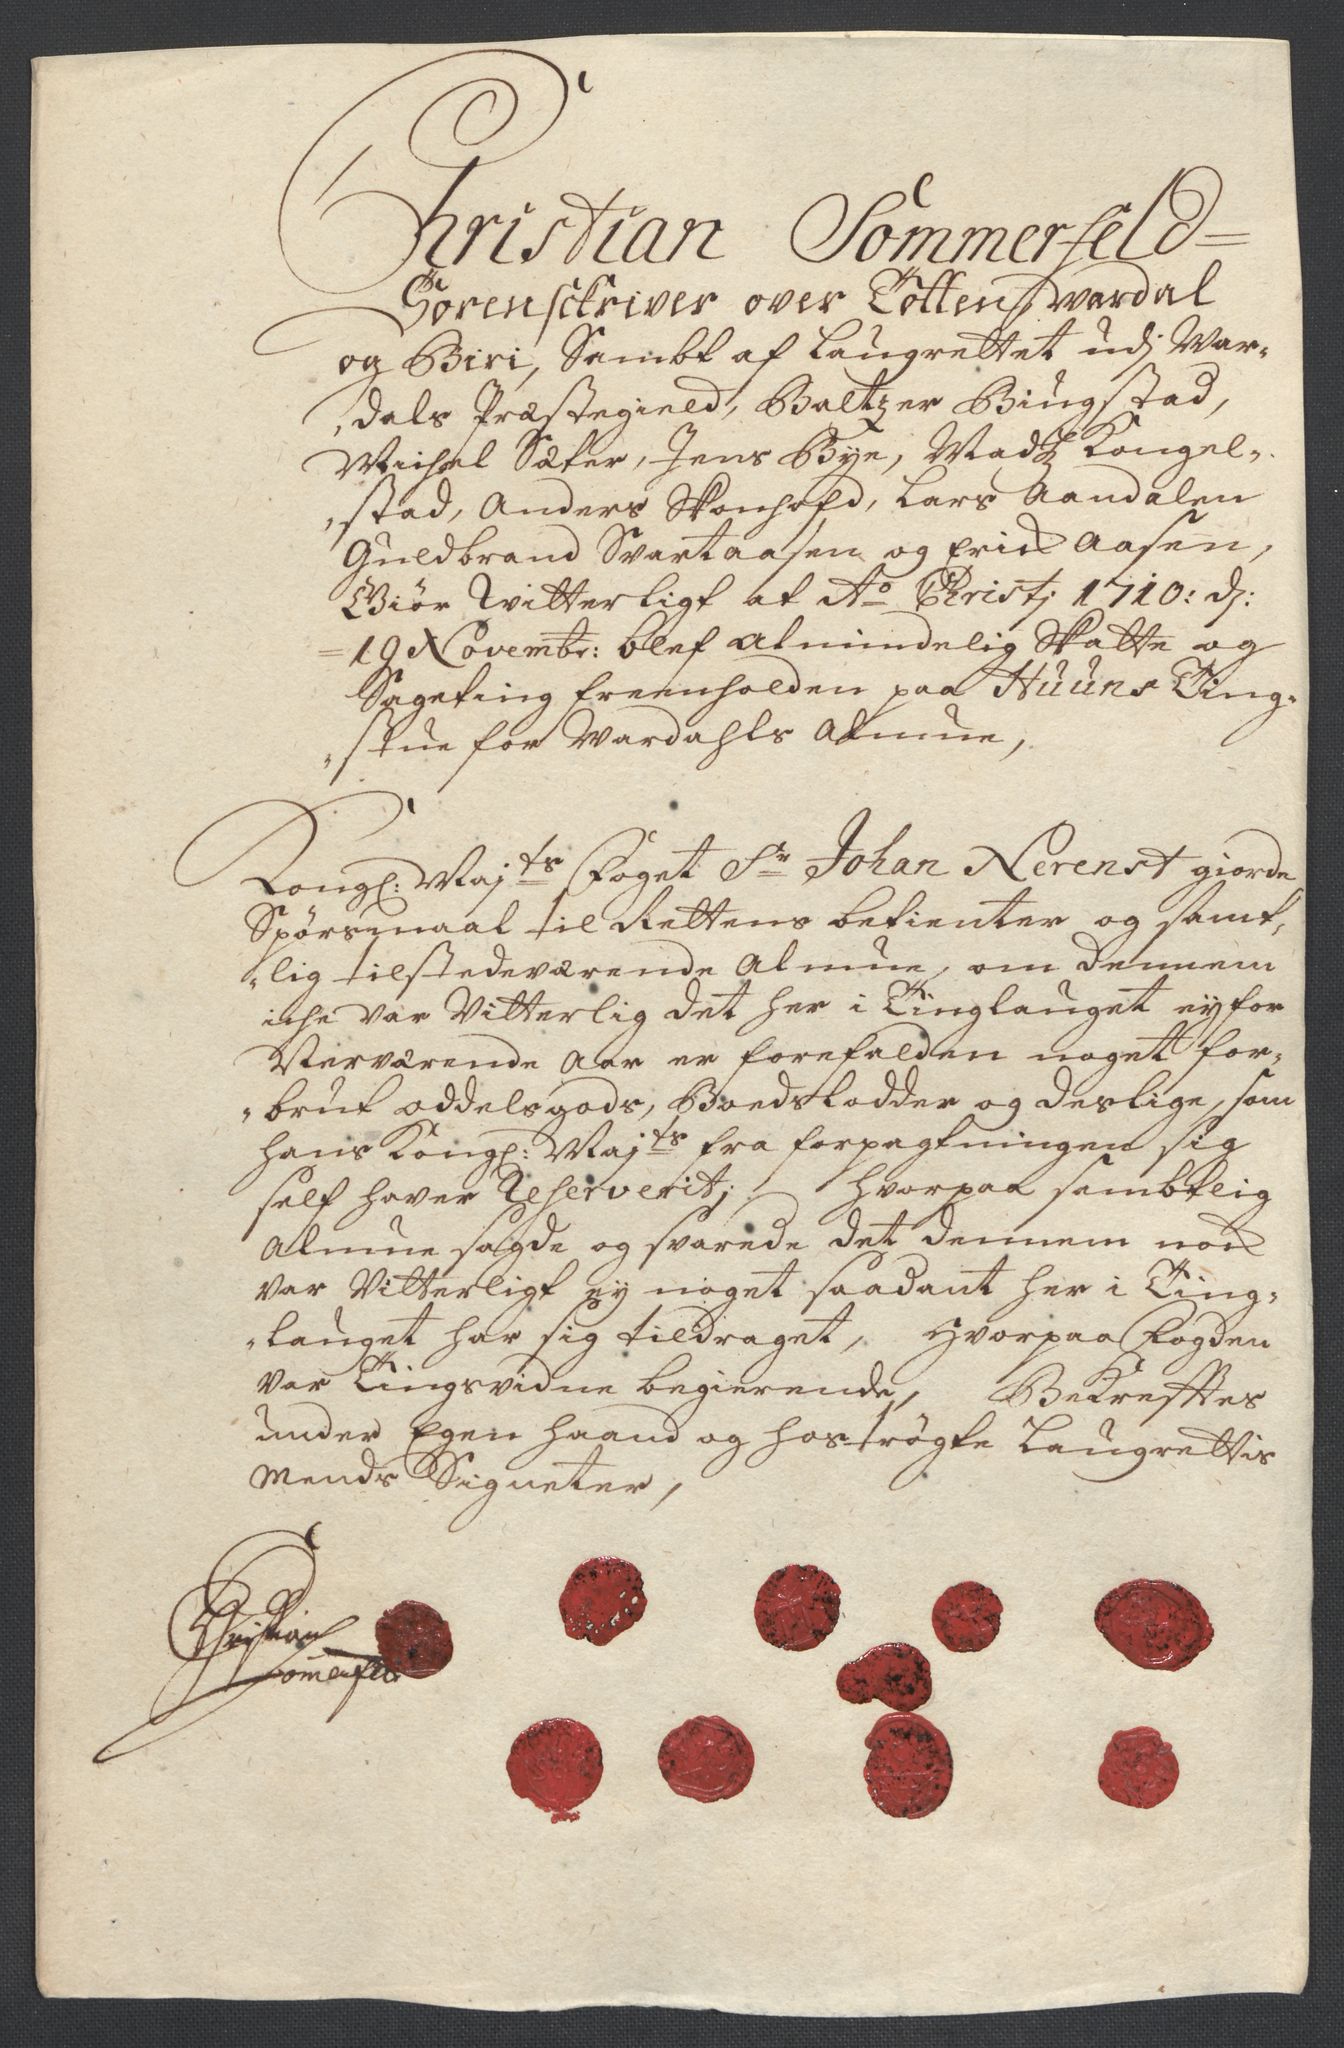 Christian Sommerfeld=
Sorenschriver over Totten, Wardal
og Biri, Sambt af Laugrettet udj War„
„dals Præstegield, Baltzer Biugstad,
Michel Sæter, Jens Bye, Madtz Kongel„
„stad, Anders Skonhofd, Lars Aandalen
Guldbrand Svartaasen og Erich Aasen,
Giör Witterligt at Ao Christj 1710: dj:
=19 Novembr: blef Almindelig Skatte og
Sageting freenholden paa Huuns Ting„
„stue for Wardahls Almue,
Kongl: Maj:ts Foget Sr Johan Nerenst giorde
Spörsmaal til Rettens betienter og samt„
„lig tilstedeværende Almue, om dennem
iche var Vitterlig det her i Tinglauget ey for
Nerværende Aar er forefalden noget for„
„brut oddelsgods, Boedslodder og deslige, som
hans Kongl: Maj:ts fra forpagtningen sig
self haver Reserverit; hvorpaa sambtlig
Almue sagde og svarede det dennem noch
var Vitterligt ey noget saadant her i Ting„
„lauget har sig tildraget, Hvorpaa Fogden
var Tingsvidne begierende, Bekrefftes
under Egen haand og hoströgte Laugrettis
Mends Signeter,
Christian
Somerfeld